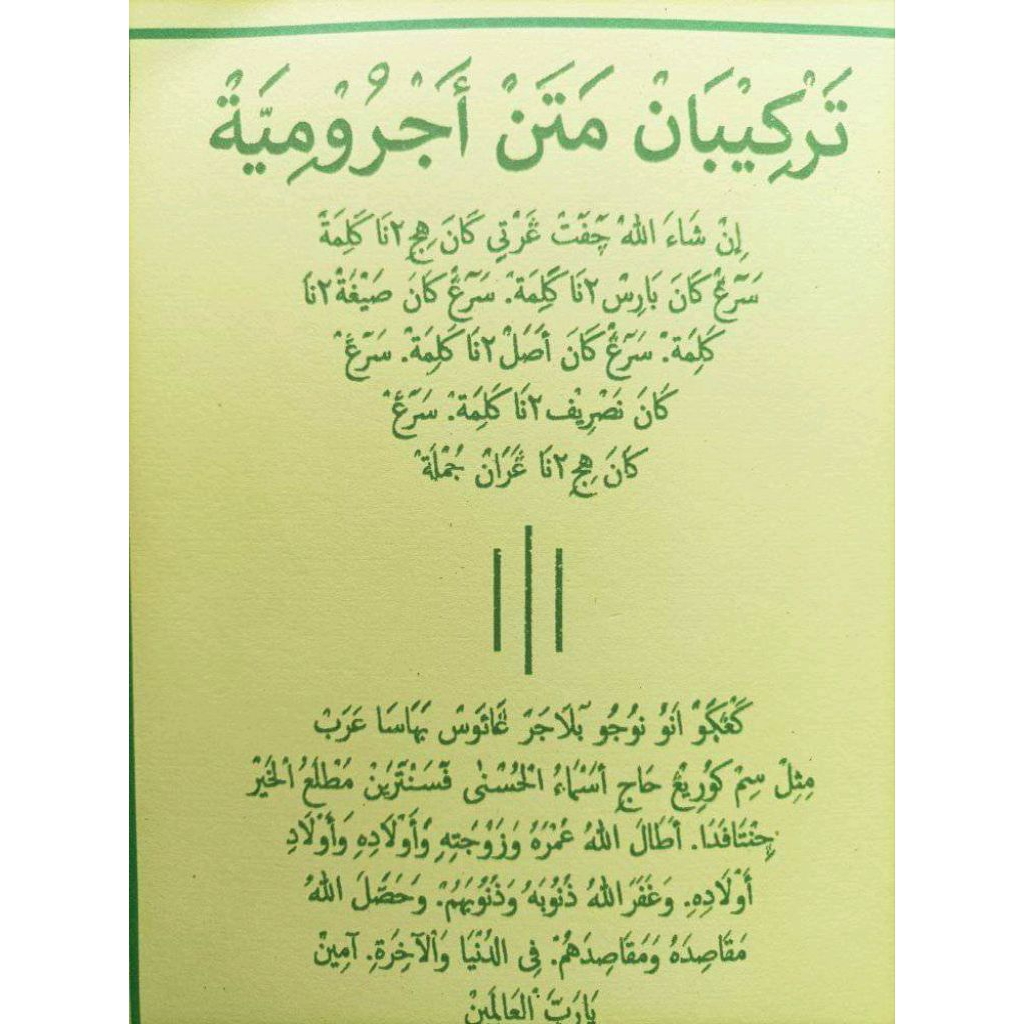 تَرْكِيْبَانْ مَتَنْ أَجْرُوْمِيَّةْ
إِنْ شَاءَ اللهُ چَفَتْ ڠَرْتِي كَانَ هِجِ٢نَا كَلِمَةْ
سَرَڠْ كَانَ بَارِسْ٢نَا كَلِمَةْ. سَرَڠْ كَانَ صَيْغَةْ٢نَا
كَلِمَةْ. سَرَڠْ كَانَ أَصَلْ٢نَا كَلِمَةْ. سَرَڠْ
كَانَ تَصْرِيْف٢نَا كَلِمَةْ. سَرَڠْ
كَانَ هِجِ٢نَا ڠَرَانْ جُمْلَةْ
كَڠْڮَوْ أَنُوْ نُوْجُو بَلَاجَرْ ڠَائَوسْ بَهَاسَا عَرَبْ
مِثِلْ سِمْ كُوْرِيڠْ حَاجِ أَسْمَاءُ الْحُسْنٰى فَسَنْتَرَيَنْ مَطْلَعُ الْخَيْرْ
چِنْتَافَدَا. أَطَالَ اللهُ عُمْرَهُ وَزَوْجَتِهِ وَأَوْلَادِهِ وَأَوْلَادِ
أَوْلَادِهِ. وَغَفَرَ اللهُ ذُنُوْبَهُ وَذُنُوْبَهُمْ. وَحَصَّلَ اللهُ
مَقَاصِدَهُ وَمَقَاصِدَهُمْ. فِى الدُّنْيَا وَالْآخِرَةِ. آمِيْنْ
يَارَبَّ الْعَالَمِيْنْ